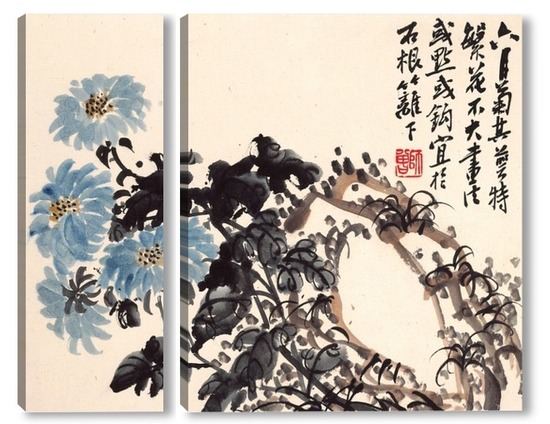 六月菊其萼特
繁花不大畫法
或點或鈎宜於
石根竹籬下
師曾